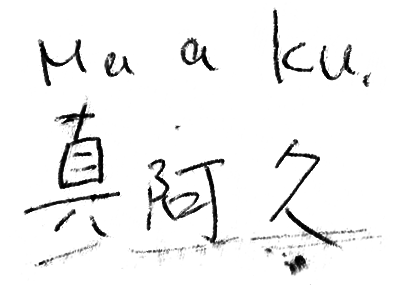 Ma a ku.
真阿久